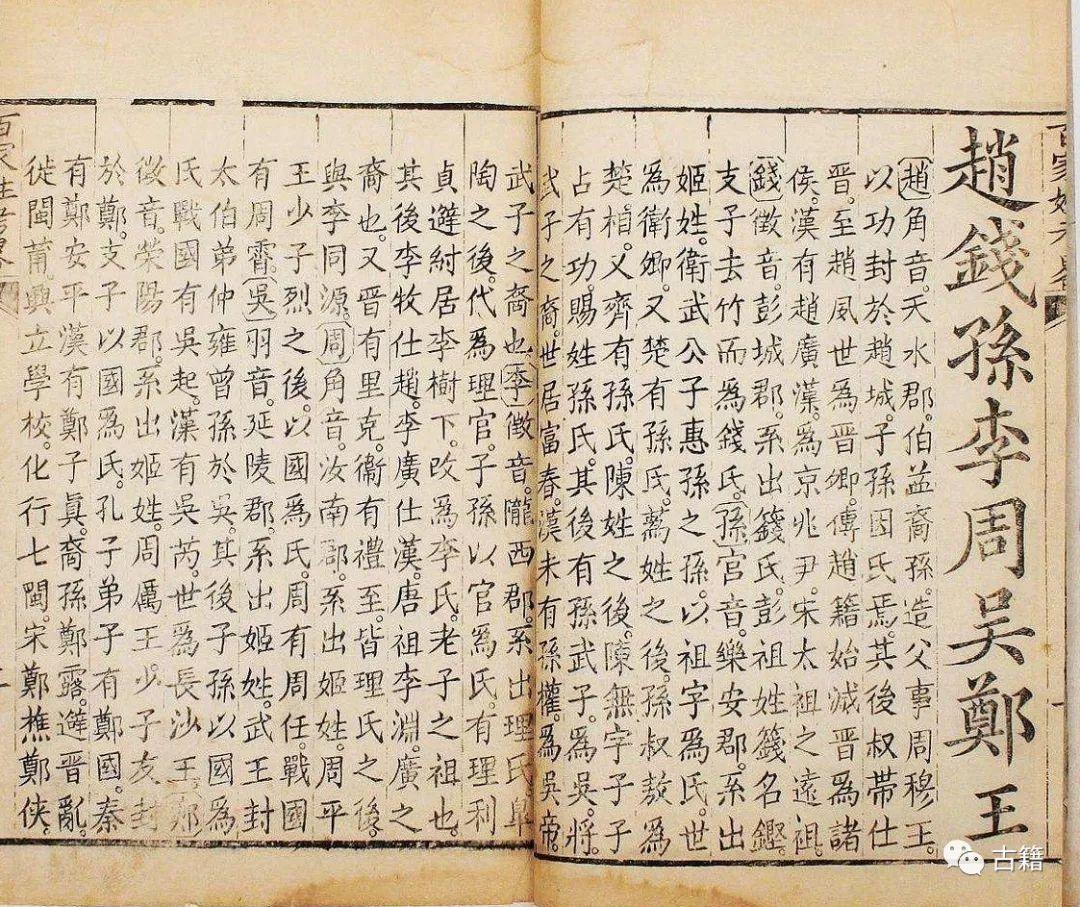 百家姓考畧
趙錢孫李周吳鄭王
趙角音。天水郡。伯益裔孫。造父事周穆王。
以功封於趙城。子孫因氏焉。其後叔帶仕
晉。至趙威世為晉卿。傳趙籍始滅晉為諸
侯。漢有趙廣漢。為京兆尹。宋太祖之遠祖。
錢徵音。彭城郡。系出籛氏。彭祖姓籛名鏗。
支子去竹而為錢氏。孫宮音。樂安郡。系出
姬姓。衛武公子惠孫之孫。以祖字為氏。世
為衛卿。又楚有孫氏。蒍姓之後。孫叔敖為
楚相。又齊有孫氏。陳姓之後。陳無宇子子
占有功。賜姓孫氏。其後有孫武子。為吳將。
武子之裔。世居富春。漢末有孫權。為吳帝。
武子之裔也。李徵音。隴西郡。系出理氏臯
陶之後。代為理官。子孫以官為氏。有理利
貞避紂居李樹下。改為李氏。老子之祖也。
其後李牧仕趙。李廣仕漢。唐祖李淵。廣之
裔也。又晉有里克。衞有禮至。皆理氏之後。
與李同源。周角音。汝南郡。系出姬姓。周平
王少子烈之後。以國為氏。周有周任。戰國
有周霄。吳羽音。延陵郡。系出姬姓。武王封
太伯弟仲雍曾孫於吳。其後子孫以國為
氏。戰國有吳起。漢有吳芮。世為長沙王。鄭
徵音。榮陽郡。系出姬姓。周厲王少子友封
於鄭。支子以國為氏。孔子弟子有鄭國。秦
有鄭安平漢有鄭子真。裔孫鄭露。避晉亂。
徙閩莆。興立學校。化行七閩。宋鄭樵鄭俠。
百家姓考畧
古籍